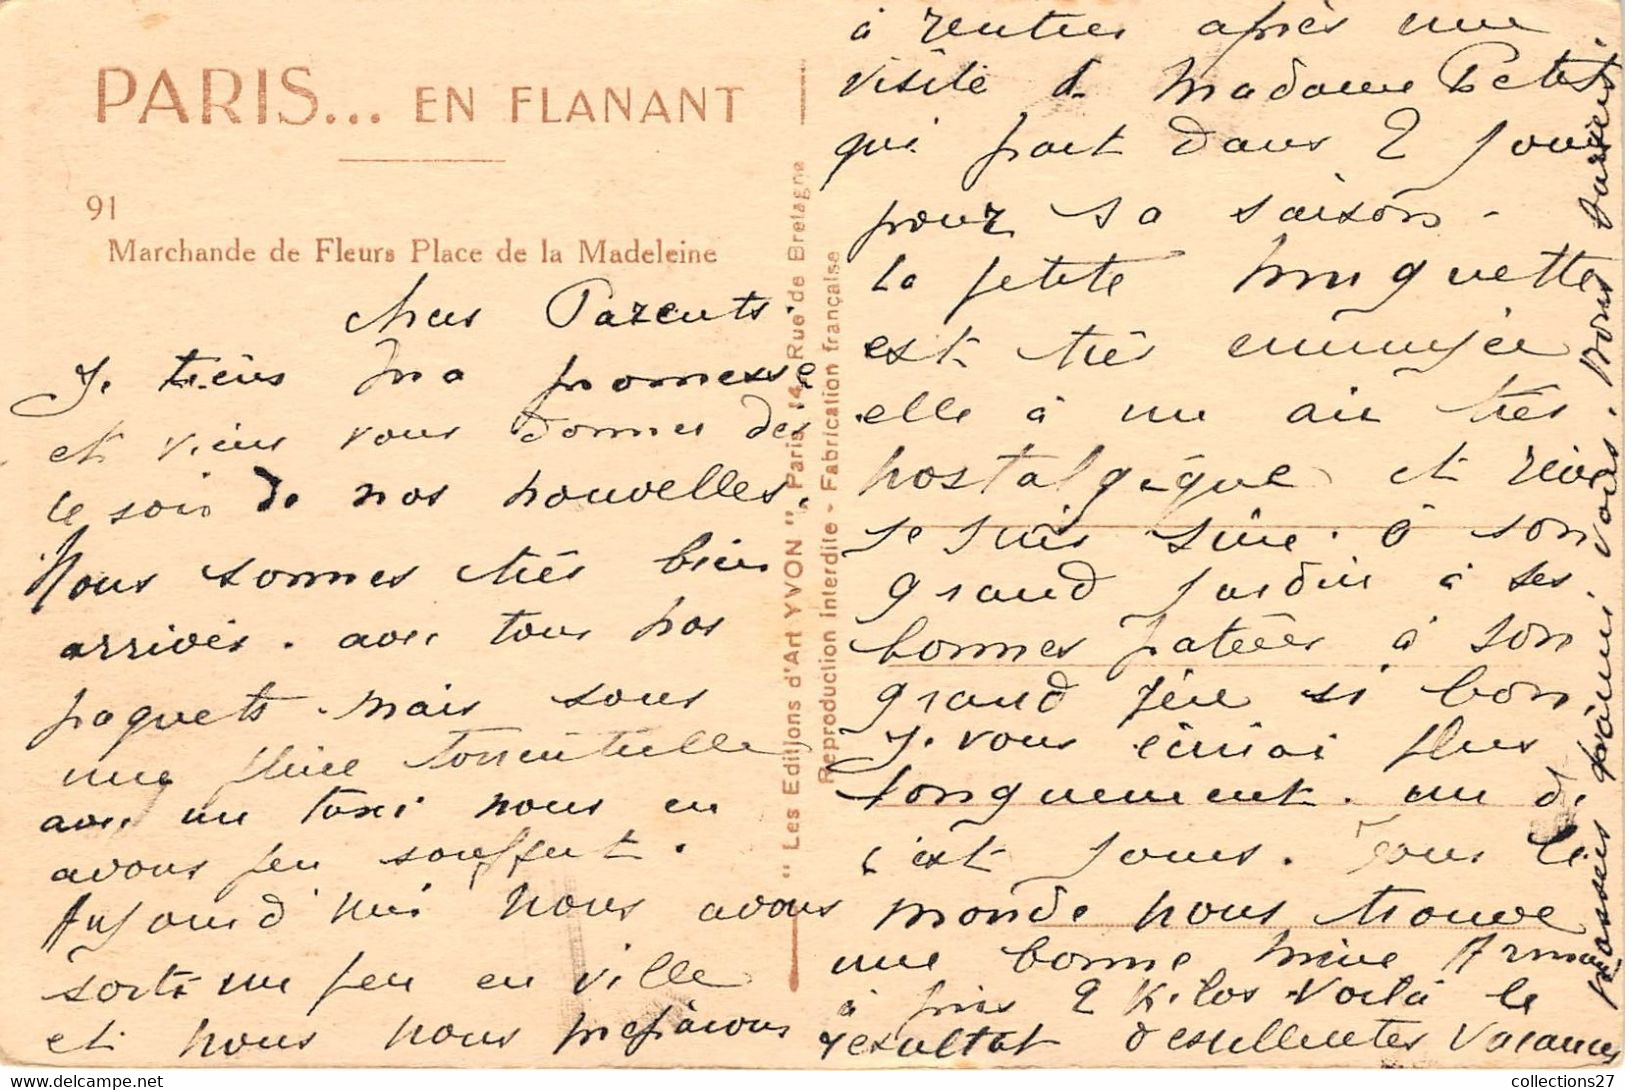 PARIS... EN FLANANT
91
Marchande de Fleurs Place de la Madeleine
chers Parents.
Je tiens ma promesse
et viens vous donner des
le soir de nos nouvelles.
Nous sommes très bien
arrivés. avec tous nos
paquets. mais sous
une pluie torrentielle
avec un taxi nous en
avons peu souffert.
Aujourd'hui nous avons
sorti un peu en ville
et nous nous préparons
"Les Editions d'Art YVON", Paris, 14, Rue de Bretagne
Reproduction interdite - Fabrication française
à rentrer après une
visite de Madame Petit
qui part dans 2 jours
pour sa saison.
La petite huguette
est très ennuyée
elle à un air très
nostalgique et rêve
je suis sûre. à son
grand jardin à ses
bonnes patées à son
grand père si bon
Je vous écrirai plus
longuement. un de
c'est jours. Tous le
monde nous trouve
une bonne mine Arman
à pris 2 Kilos Voilà le
résultat d'exellentes vacances
passées parmi vous. Bons baisers
collections27